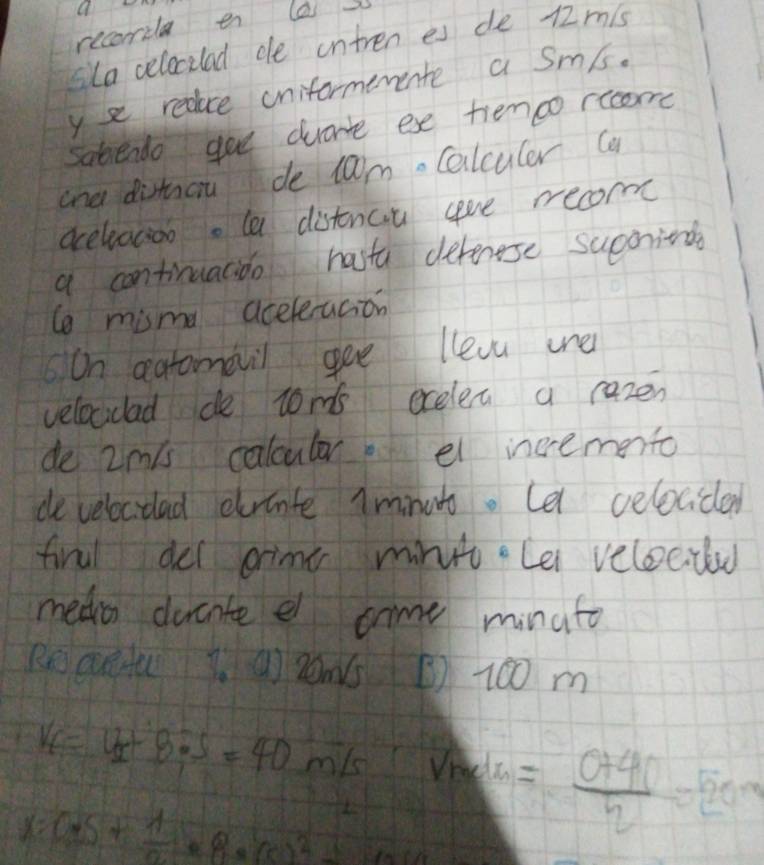 recorrida en las
5)La velocidad de un tren es de 12m/s
y se reduce uniformemente a 5m/s.
Sabiendo que durante ese tiempo recorre
una distancia de 100m • Calcular la
aceleración • la distancia que recorre
a continuación hasta detenerse suponiendo
la misma aceleración
6)Un automóvil que lleva una
velocidad de 10m/s acelera a razón
de 2m/s calcular • el incremento
de velocidad durante 1minuto • La velocidad
final del primer minuto • La velocidad
media durante el primer minuto
Respuesta 1. a) 20m/s B) 100 m
= 40 m/s Vmedia = 0+40
2